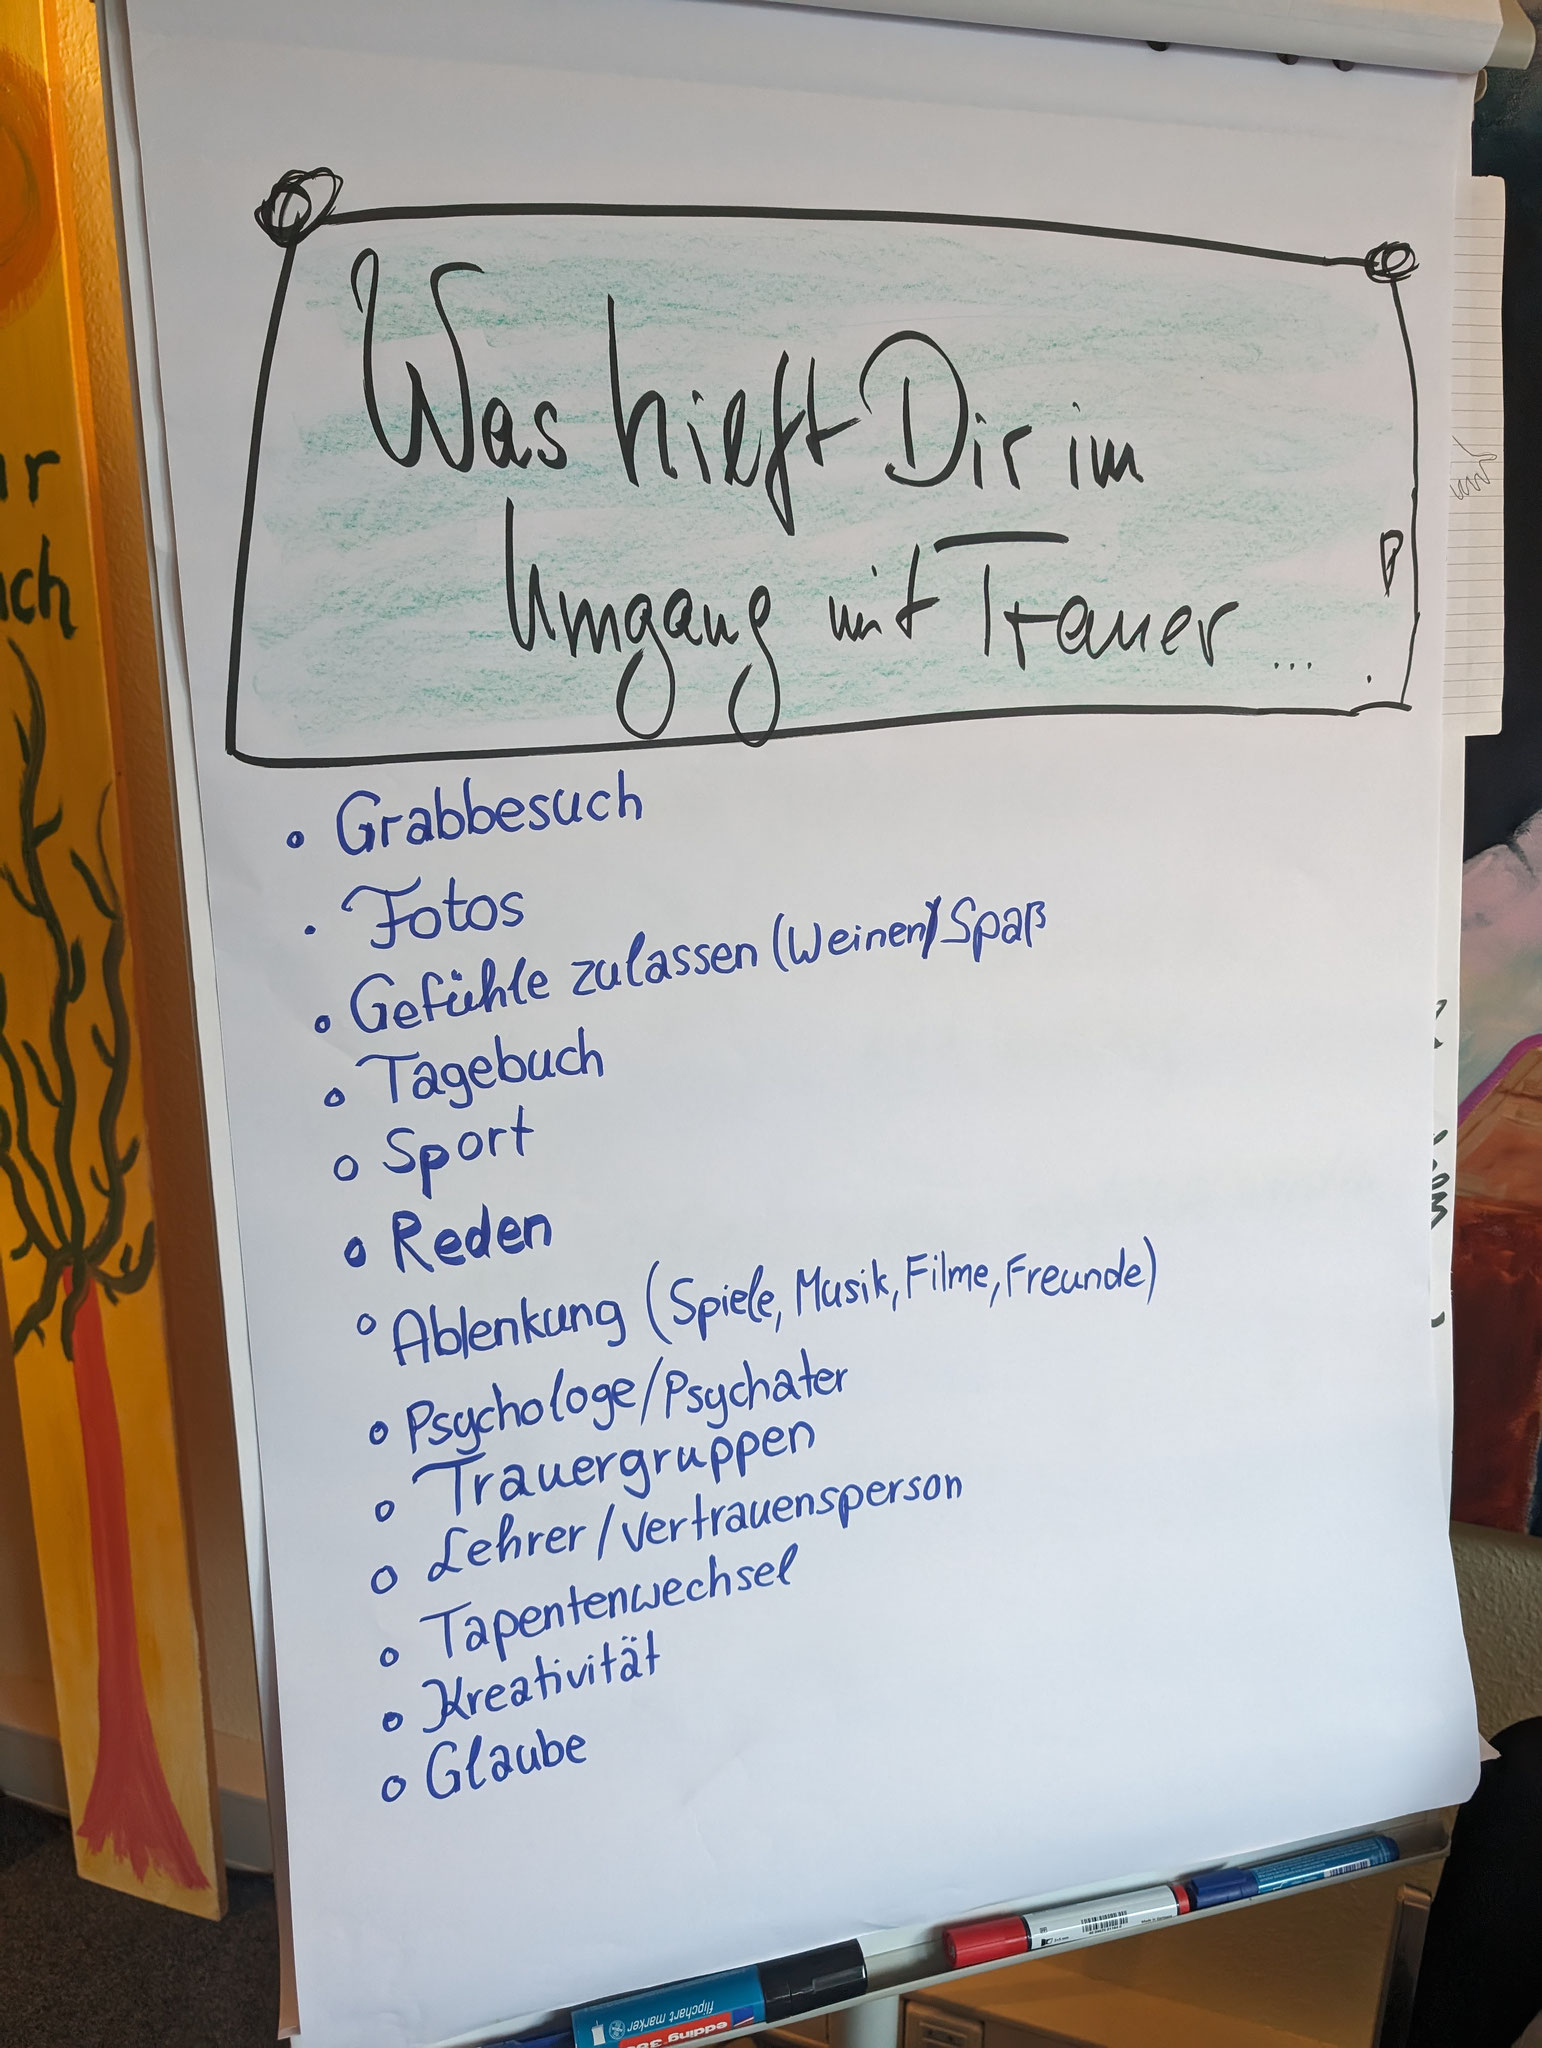 Was hilft Dir im
Umgang mit Trauer ...
• Grabbesuch
• Fotos
• Gefühle zulassen (Weinen)/Spaß
• Tagebuch
• Sport
• Reden
• Ablenkung (Spiele, Musik, Filme, Freunde)
• Psychologe/Psychater
• Trauergruppen
• Lehrer/Vertrauensperson
• Tapentenwechsel
• Kreativität
• Glaube
flipchart marker
edding 38